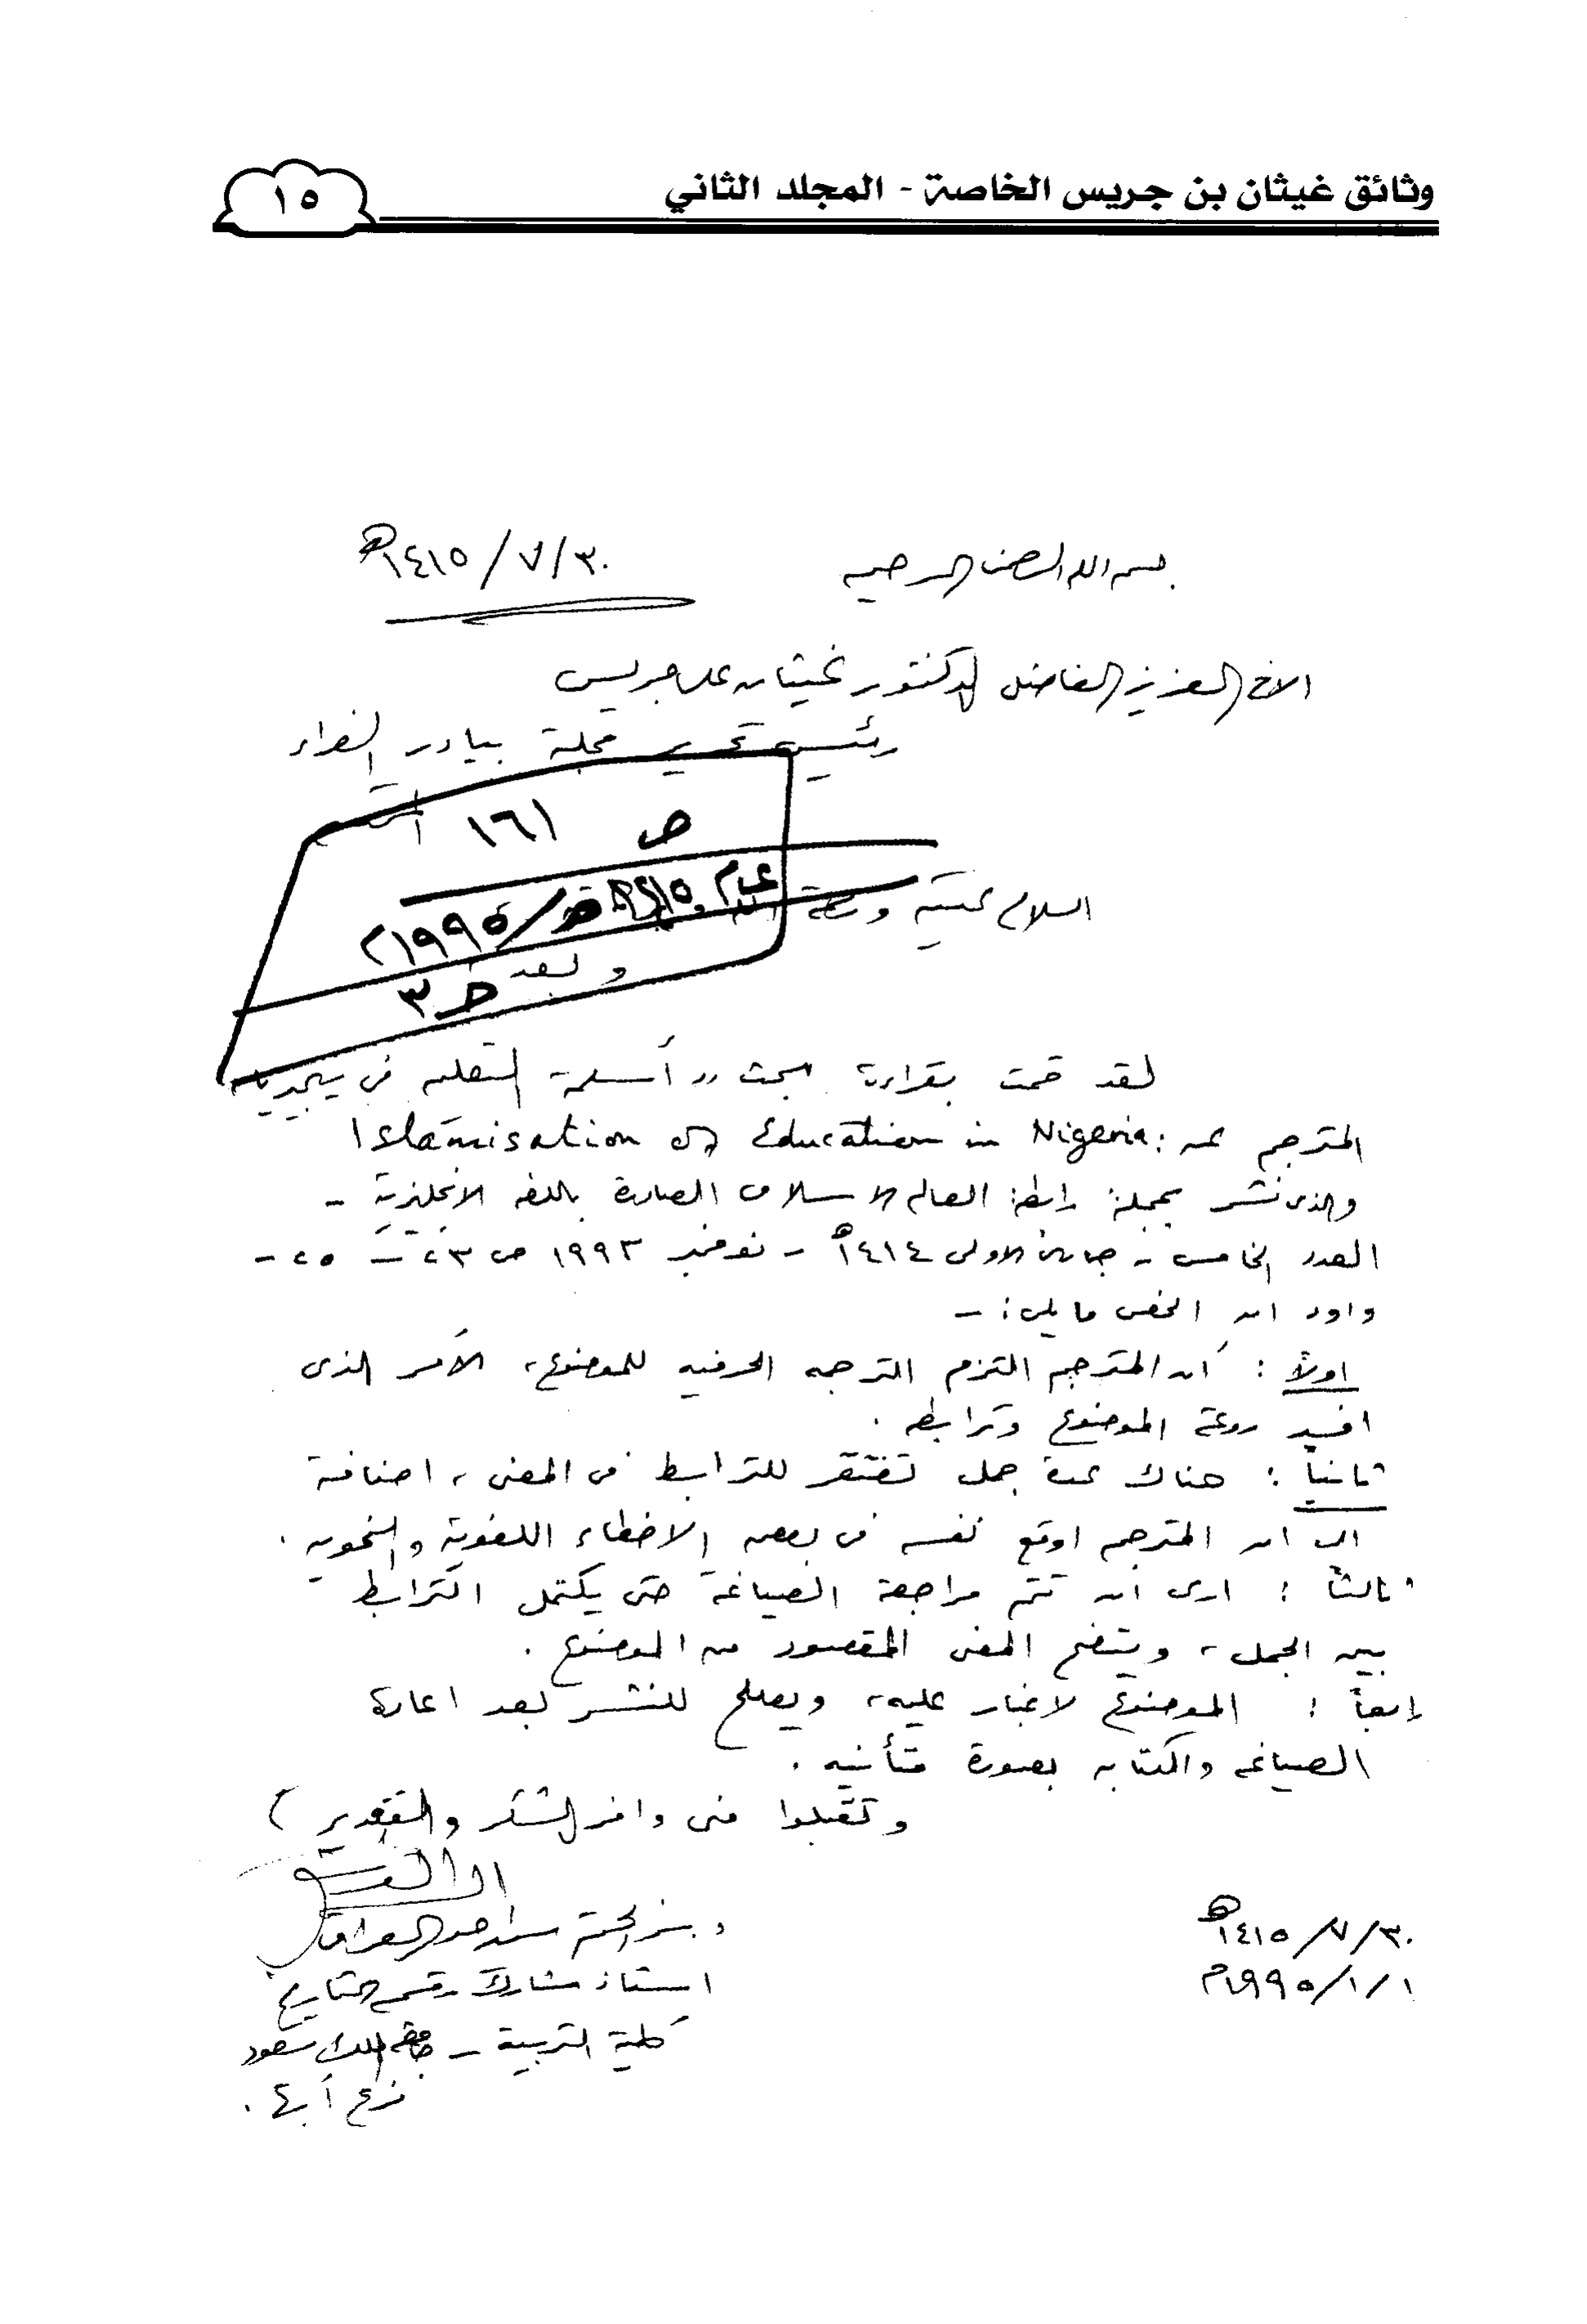 وثائق غيثان بن جريس الخاصة - المجلد الثاني
١٥
بسم الله الرحمن الرحيم
٣٠/٧/١٤١٥هـ
الاخ العزيز الفاضل الدكتور غيثان علي جريس
رئيس تحرير مجلة بيادر الغراء
ص ١٦١
السلام عليكم ورحمة الله
عام ١٤١٥هـ/١٩٩٥م
وبعد
٣
لقد قمت بقراءة البحث "أسلمة التعليم في نيجيريا"
المترجم عن: Islamisation of Education in Nigeria
والذى نشر بمجلة رابطة العالم الاسلامى الصادرة باللغة الانجليزية -
العدد الخامس - جمادى الاولى ١٤١٤هـ - نوفمبر ١٩٩٣ ص ٢٣ - ٢٥ -
واود ان الخص ما يلى: -
اولاً: أن المترجم التزم الترجمه الحرفيه للموضوع، الأمر الذى
افسد روعة الموضوع وترابطه.
ثانياً: هناك عدة جمل تفتقر للترابط فى المعنى، اضافة
الى ان المترجم اوقع نفسه فى بعض الاخطاء اللغوية والنحويه.
ثالثاً: ارى ان تتم مراجعة الصياغة حتى يكتمل الترابط
بين الجمل، ويتضح المعنى المقصود من الموضوع.
رابعاً: الموضوع لا غبار عليه، ويصلح للنشر بعد اعادة
الصياغه والكتابه بصورة متأنيه.
وتقبلوا منى وافر الشكر والتقدير،
٣٠/٧/١٤١٥هـ
١/١/١٩٩٥م
استاذ مشارك بقسم التاريخ
كلية التربية - جامعة الملك سعود
فرع أبها.